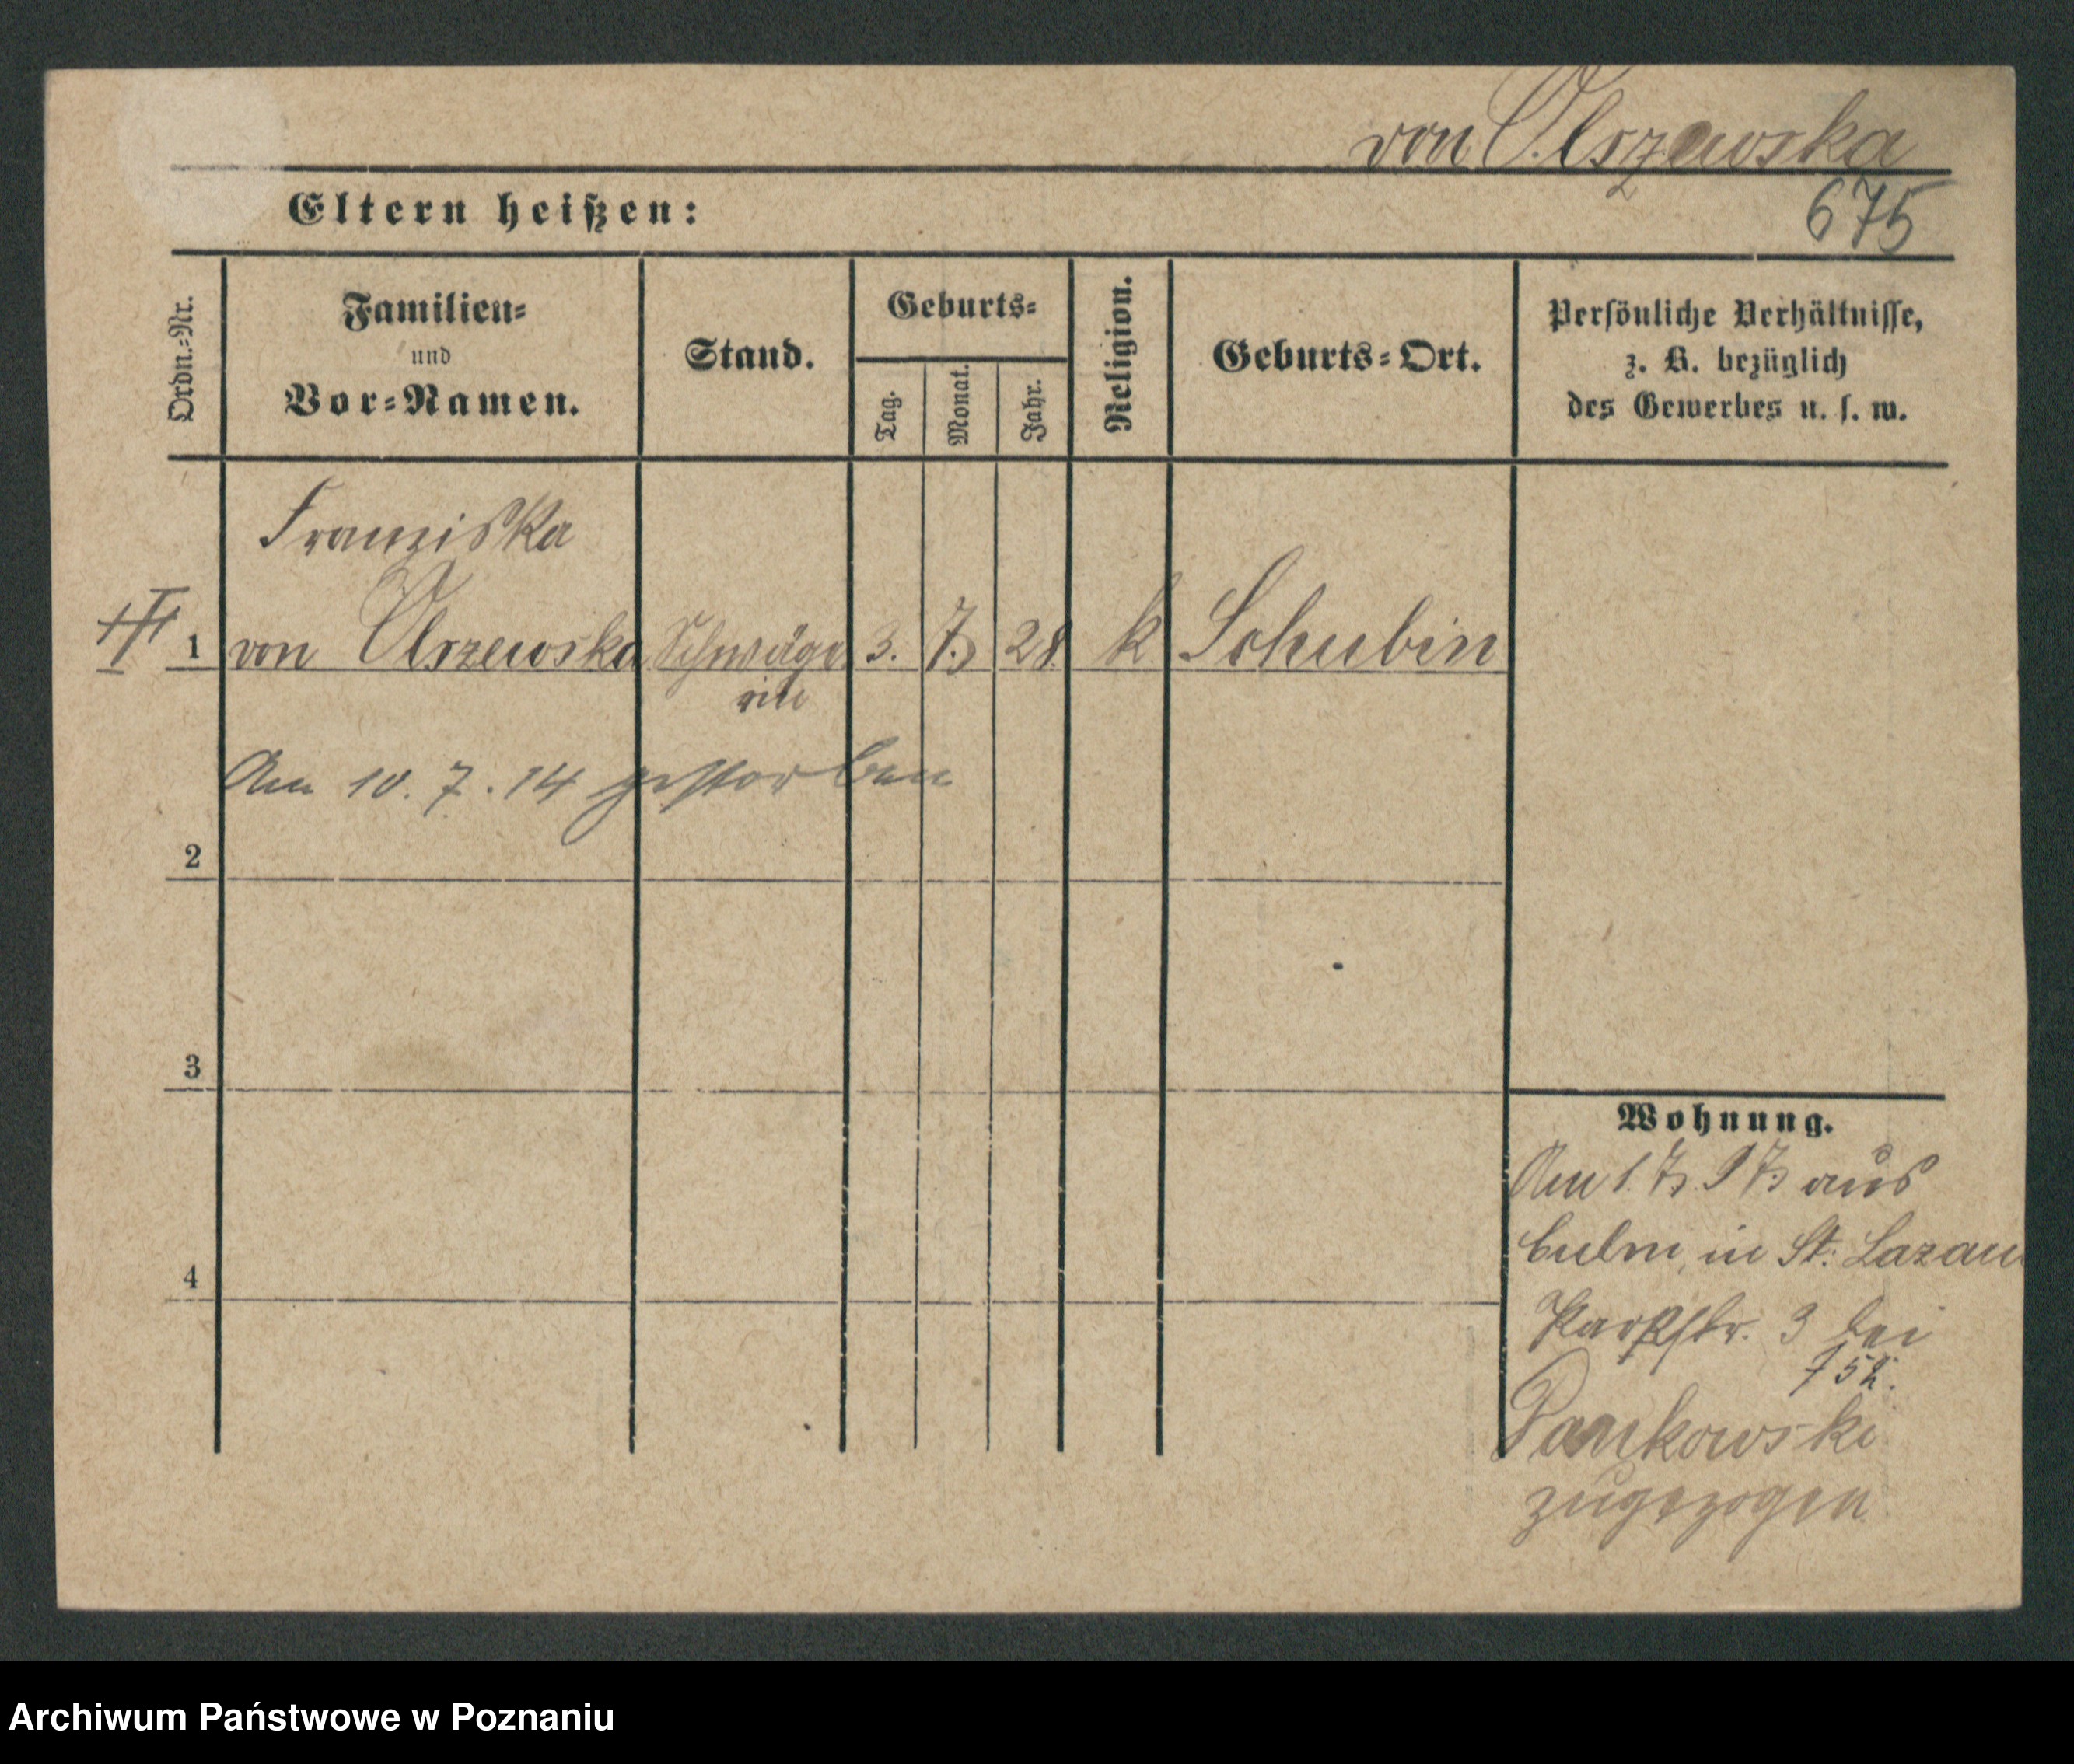 von Olszewska
Eltern heißen:
675
Ordn.-Nr.
Familien-
und
Vor-Namen.
Stand.
Geburts-
Tag.
Monat.
Jahr.
Religion.
Geburts-Ort.
Persönliche Verhältnisse,
z. B. bezüglich
des Gewerbes u. s. w.
Franziska
1 von Olszewska Schwäge 3. 7. 28. k Schubin
rin
Am 10. 7. 14 gestorben
2
3
4
Wohnung.
Am 1. 7. 97 aus
Culm, in St. Lazarus
Parkstr. 3 bei
Pankowski
zugezogen
Archiwum Państwowe w Poznaniu